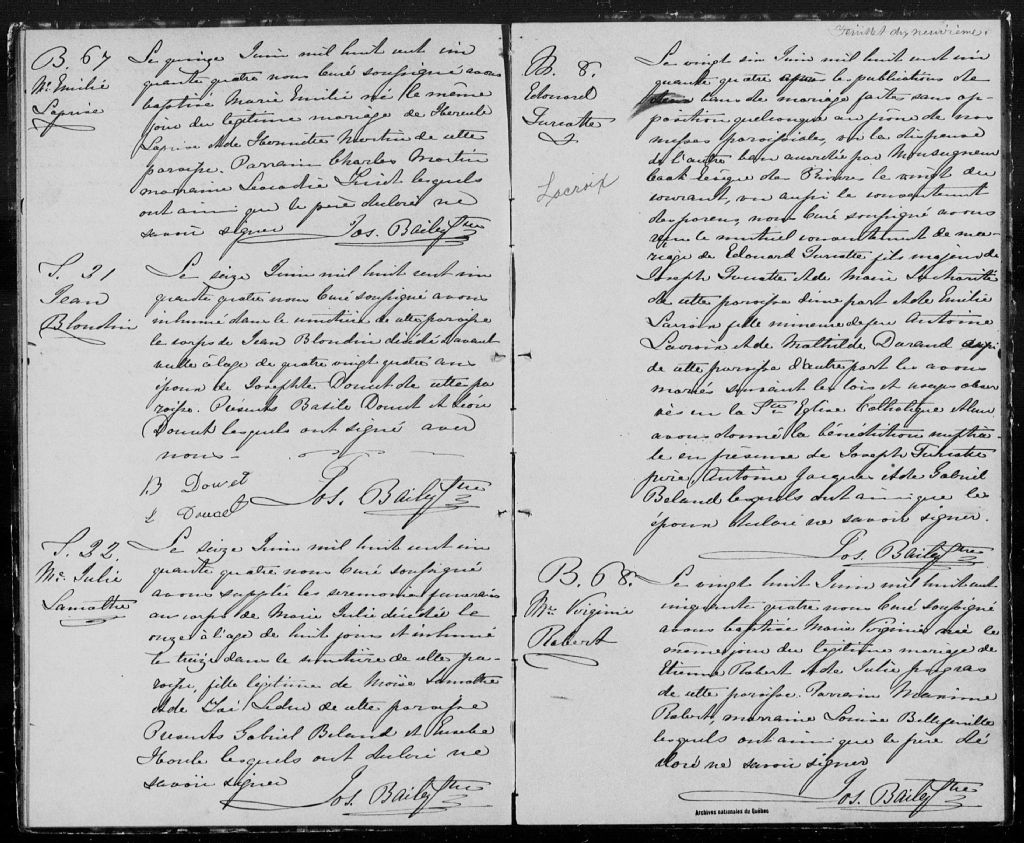 B. 67
Me Emilie
Laprise
Le quinze Juin mil huit cent cin
quante quatre nous Curé soussigné avons
baptisé Marie Emilie né le même
jour du légitime mariage de Hercule
Laprise et de Henriette Martin de cette
paroisse. Parrain Charles Martin
marraine Leocadie lesquels
ont ainsi que le père déclaré ne
savoir signer Jos. Bailey Ptre
S. 21
Jean
Blondin
Le seize Juin mil huit cent cin
quante quatre nous Curé soussigné avons
inhumé dans le cimetière de cette paroisse
le corps de Jean Blondin décédé avant
veille à l'age de quatre vingt quatre ans
époux de Josephte Doucet de cette pa
roisse. Présents Basile Doucet et
Doucet lesquels ont signé avec
nous
B Doucet
L Doucet Jos. Bailey Ptre
S. 22.
Me Julie
Lamothe
Le seize Juin mil huit cent cin
quante quatre nous Curé soussigné
avons supplée les ceremonies funerairs
au corps de Marie Julie décédée le
onze à l'age de huit jours et inhumé
le treize dans le cimetière de cette pa-
roisse, fille légitime de Moïse Lamothe
et de Zoé Leduc de cette paroisse
Presents Gabriel Beland et Eusebe
Houle lesquels ont déclaré ne
savoir signer
Jos. Bailey Ptre
Feuillet dix neuvième.
M. 8.
Edouard
Turcotte
&
Lacroix
Le vingt six Juin mil huit cent cin
quante quatre après la publications de
deux bans de mariage faites sans op-
position quelconque au prone de nos
messes paroissiales, vu la dispense
de l'autre ban accordée par Monseigneur
Cook Evêque des 3 Rivieres le vingt du
courant, vu aussi le consentement
des parens, nous Curé soussigné avons
reçu le mutuel consentement de ma-
riage de Edouard Turcotte fils majeur de
Joseph Turcotte et de Marie Lacharité
de cette paroisse d'une part et de Emilie
Lacroix fille mineure de feu Antoine
Lacroix et de Mathilde Durand aussi
de cette paroisse d'autre part les avons
mariés suivant les lois et usages obser
vés en la Ste Eglise Catholique et leur
avons donné la bénédiction nuptia-
le en présence de Joseph Turcotte
père, Antoine Jacques et de Gabriel
Beland lesquels ont ainsi que les
époux déclaré ne savoir signer.
Jos. Bailey Ptre
B. 68.
Me Virginie
Robert
Le vingt huit Juin mil huit cent
cinquante quatre nous Curé soussigné
avons baptisé Marie Virginie née le
même jour du légitime mariage de
Etienne Robert et de Julie
de cette paroisse. Parrain Maxime
Robert, marraine Louise Bellefeuille
lesquels ont ainsi que le père dé
claré ne savoir signer
Jos. Bailey Ptre
Archives nationales du Québec